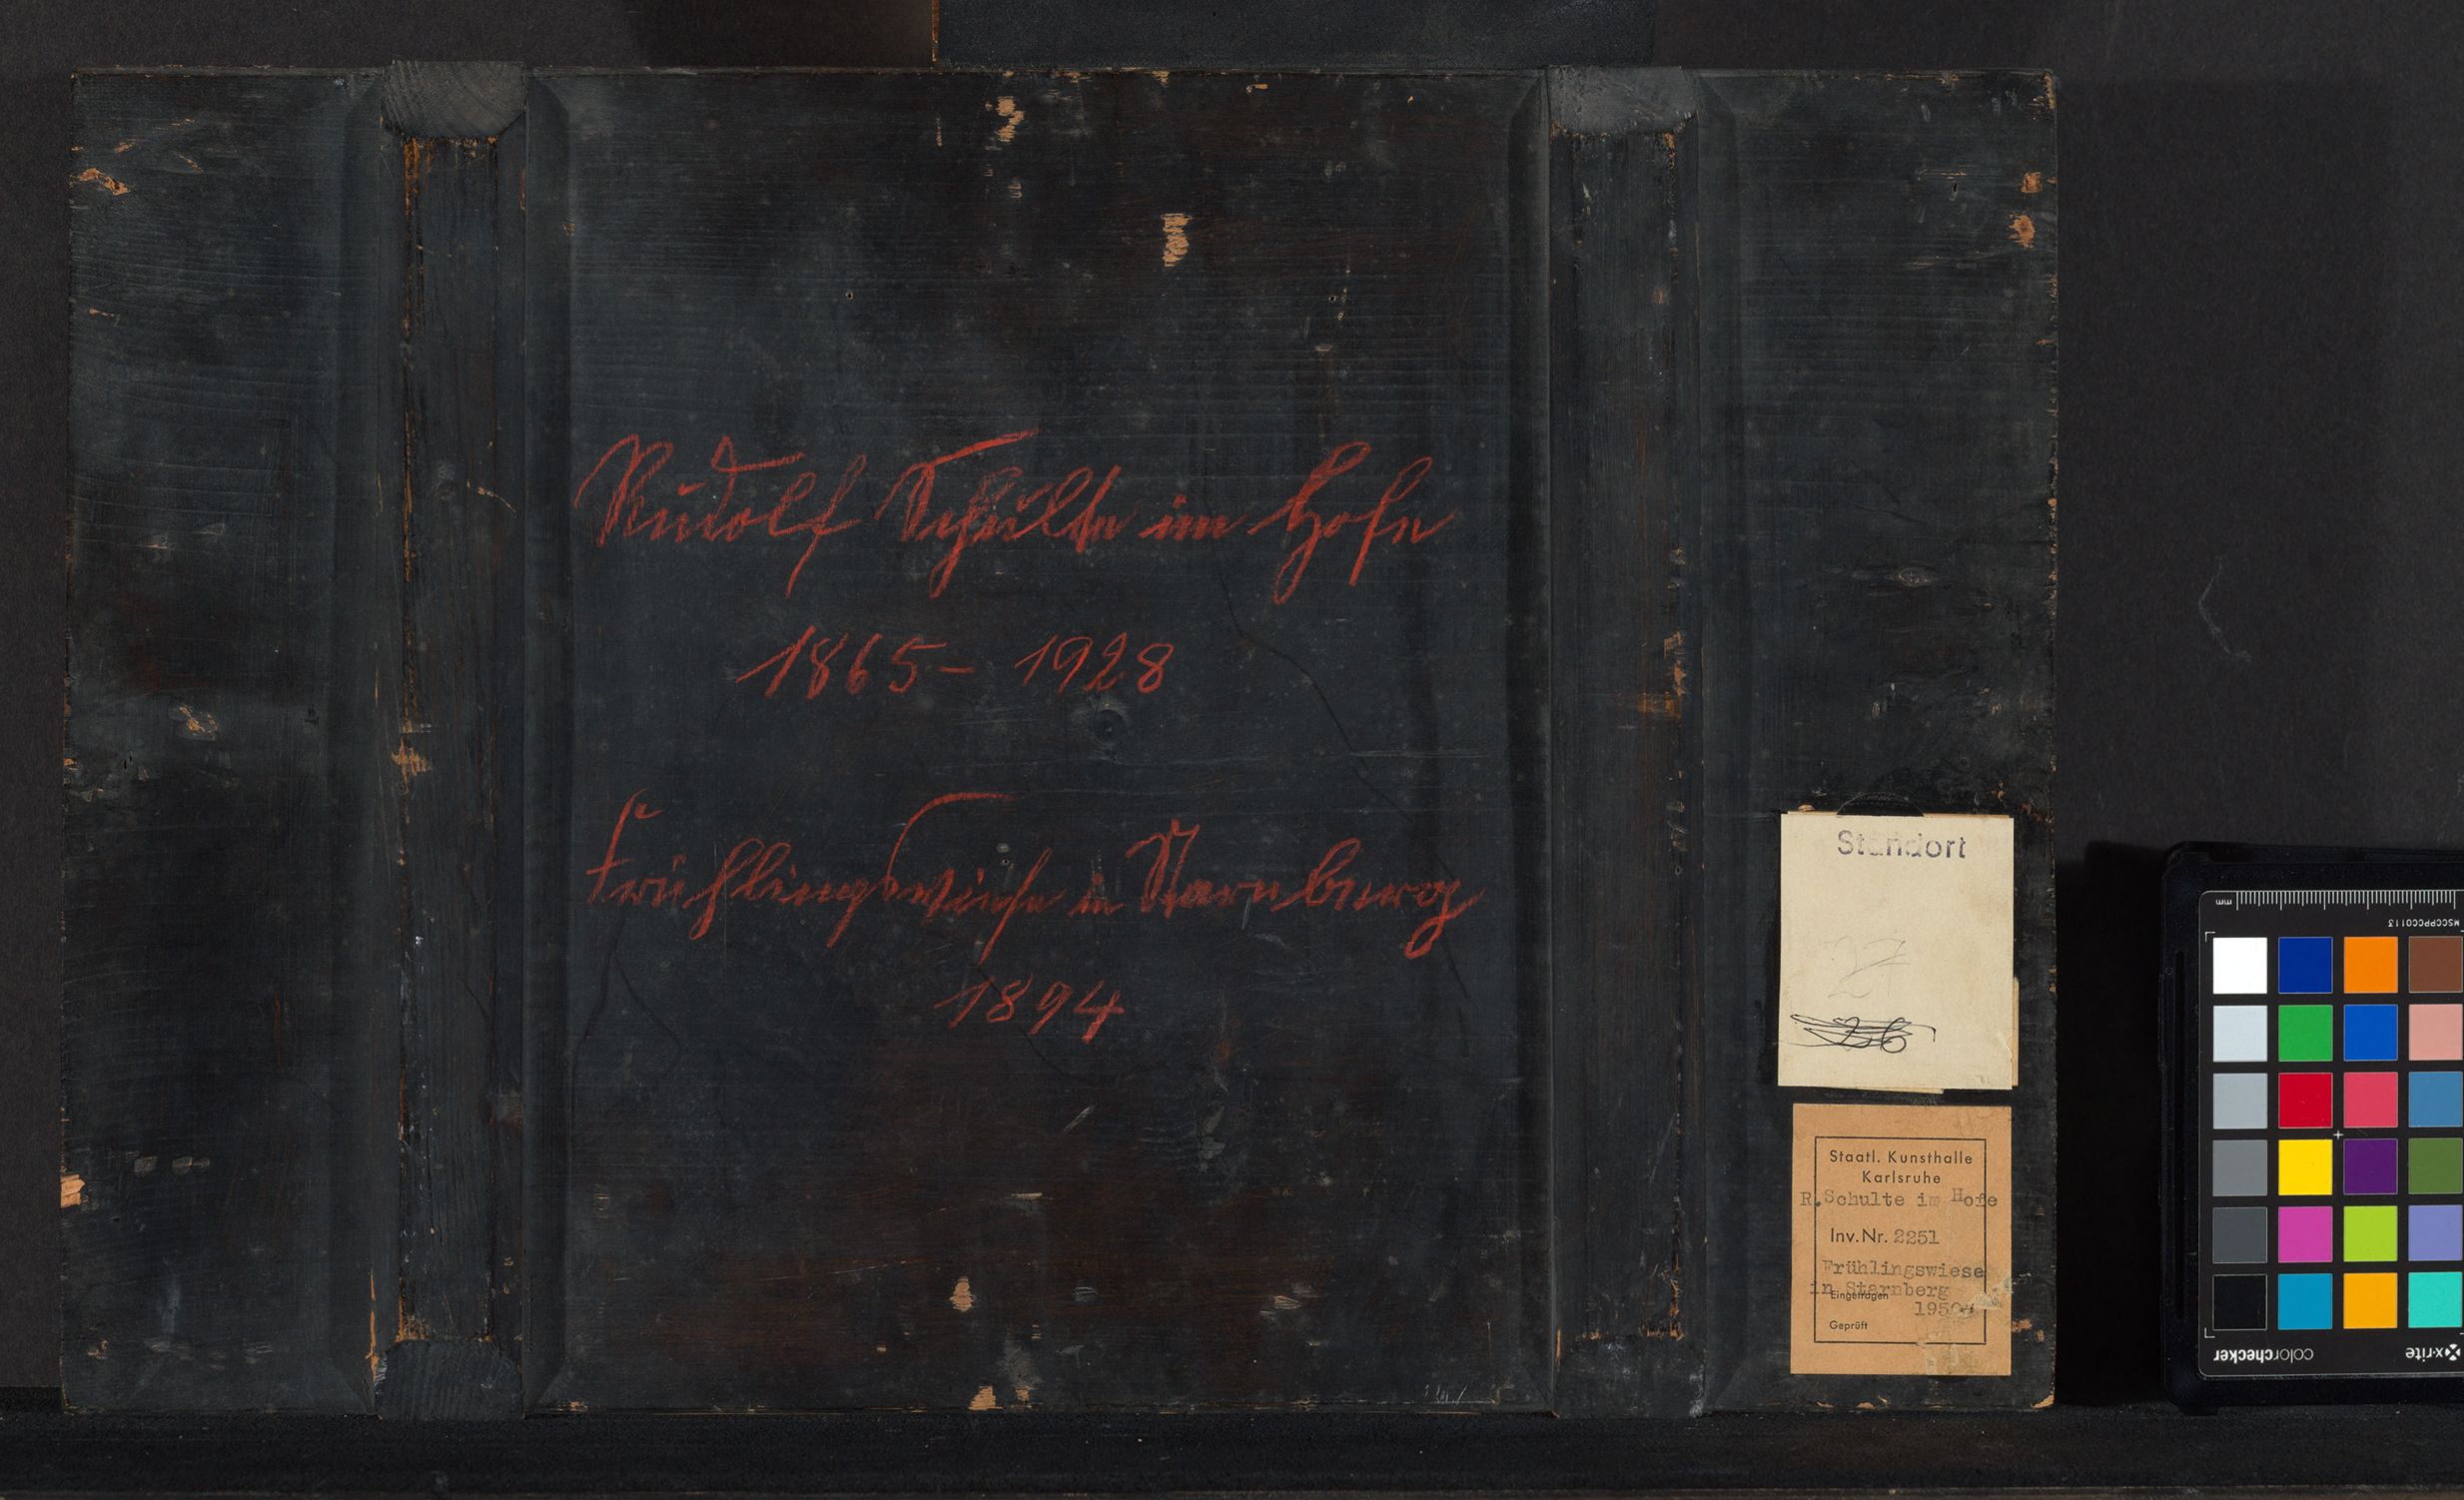 Rudolf Schulte im Hofe
1865 – 1928
Frühlingswiese in Starnberg
1894
Standort
27
26
Staatl. Kunsthalle
Karlsruhe
R. Schulte im Hofe
Inv. Nr. 2251
Frühlingswiese
in Starnberg
Eingetragen
Geprüft
mm
MSCCPPCC0113
colorchecker
x-rite